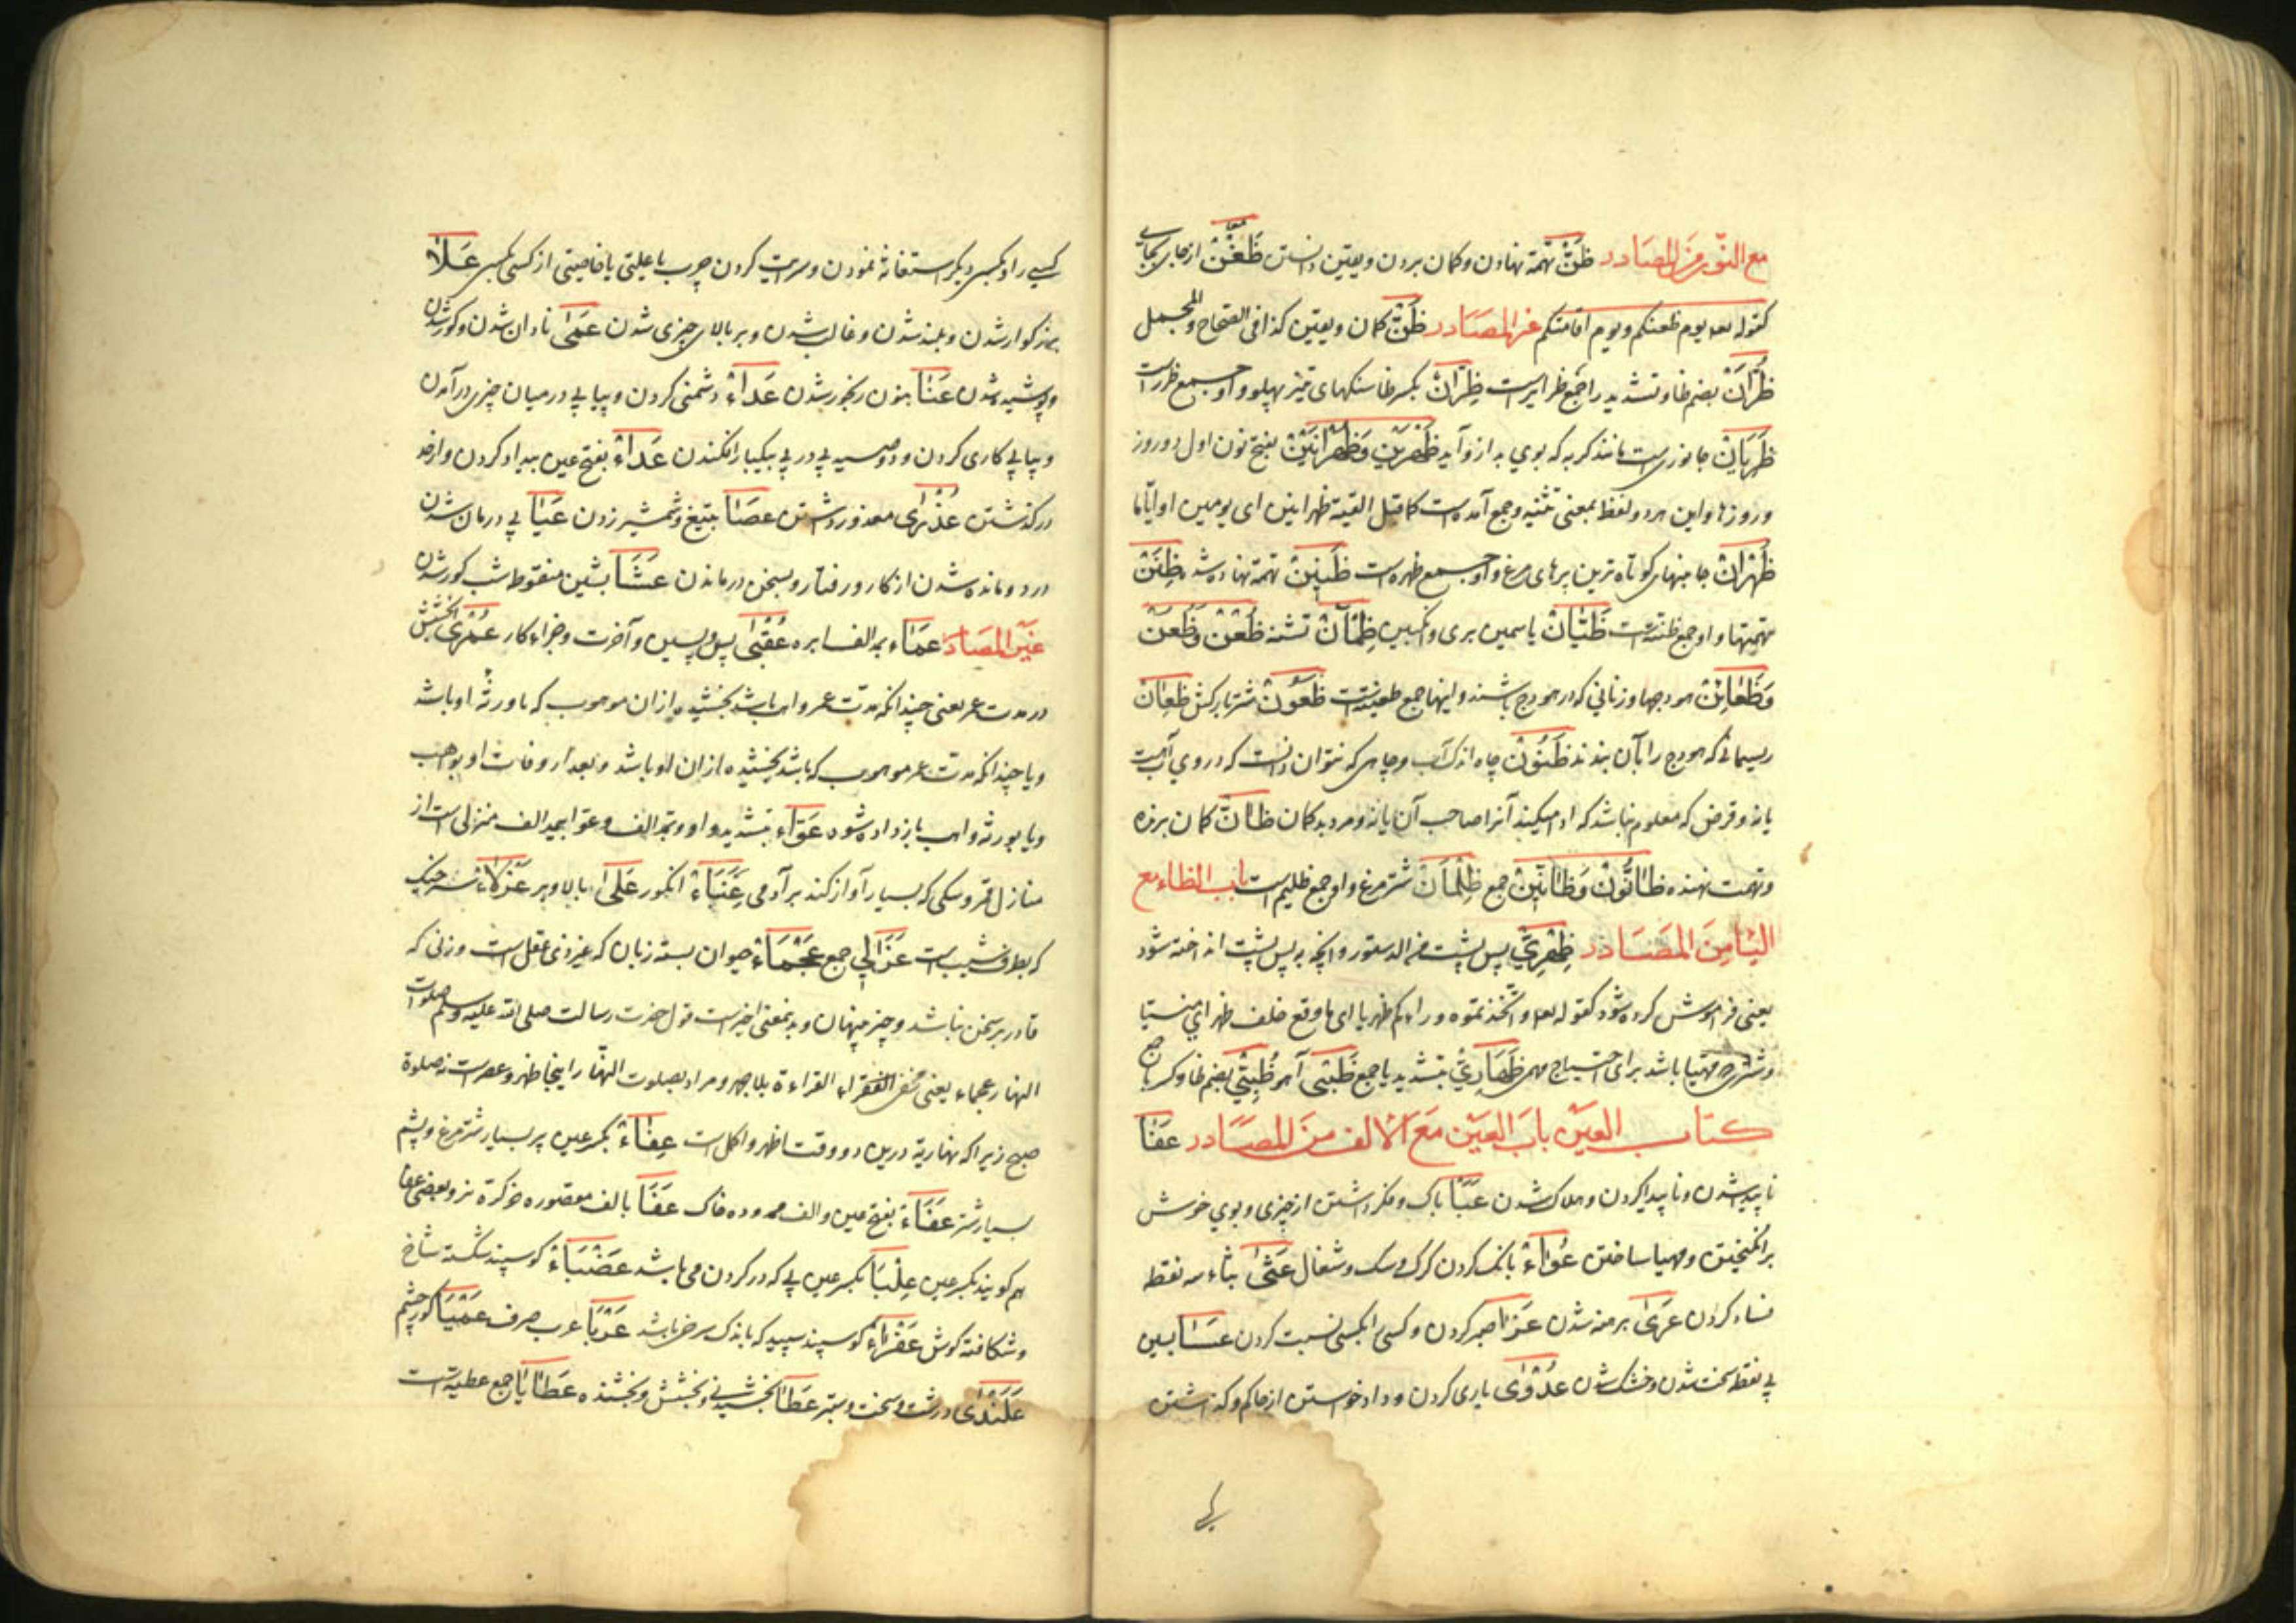 مع النون من المصادر ظَنّ تهمة نهادن و گمان بردن و یقین دانستن ظَعْن از جای بجایی
کقوله تعه یوم ظعنکم و یوم اقامتکم غیر المصادر ظَنّ گمان و یقین کذا فی الصحاح و المجمل
ظُرّان بضم ظا و تشدید را جمع ظرایر است ظِرّان بکسر ظا سنگهای تیز پهلو و او جمع ظرر است
ظَرِبان جانوری است مانند گربه که بوی بد از و آید ظَهْرَین و ظَهْرانَیْن بفتح نون اول دو روز
و روزها و این هر دو لفظ بمعنی تثنیه و جمع آمده است کما قیل القیته ظهرانین ای یومین او ایّاما
ظُهْران جانبهای کوتاه‌ترین پرهای مرغ و او جمع ظهر است ظَنِین تهمة نهاده شده ظِنَن
تهمتها و او جمع ظنّة است ظَیّان یاسمین بری و انگبین ظَمْآن تشنه ظُعْن و ظُعُن
و ظَعائِن هودجها و زنانی که در هودج باشند و اینها جمع ظعینة است ظَعُون شتر بارکش ظِعان
ریسمانی که هودج را بآن بندند ظَنُون چاه اندک آب و چاهی که نتوان دانست که در وی آب است
یا نه و قرض که معلوم نباشد که ادا میکیند آنرا صاحب آن یا نه و مرد بدگمان ظانّ گمان برنده
و تهمت نهنده ظانُّون و ظانِّین جمع ظِلْمان شترمرغ و او جمع ظلیم است باب الظاء مع
الیا من المصادر ظِهْرِیّ پس پشت من الدستور و آنچه به پس پشت انداخته شود
یعنی فراموش کرده شود کقوله تعه و اتخذتموه وراءکم ظهریا ای ما وقع خلف ظهر ای منسیّا
و شتری که مهیّا باشد برای احتیاج مهم ظَهارِیّ بتشدید یا جمع ظَبْی آهو ظُبِیّ بضم ظا و کسر با ج
کتاب العین باب العین مع الالف من المصادر عَفا
ناپدید شدن و ناپیدا کردن و هلاک شدن عَبَأ باک و فکر داشتن از چیزی و بوی خوش
برانگیختن و مهیا ساختن عُواء بانگ کردن گرگ و سگ و شغال عَثی بثاء سه نقطه
فساد کردن عَری برهنه شدن عَزا صبر کردن و کسی را بکسی نسبت کردن عَسا بسین
بی نقطه سخت شدن و خشک شدن عَدْوی یاری کردن و داد خواستن از حاکم و گذاشتن
کسی را و بکسی دیگر استغاثه نمودن و سرایت کردن چرب یا علتی یا خاصیتی از کسی بکسی عَلا
بزرگوار شدن و بلند شدن و غالب شدن و بر بالای چیزی شدن عَمی نادان شدن و کور شدن
و پوشیده شدن عَنا بنون رنجور شدن عَداء دشمنی کردن و پیاپی در میان چیزی در آمدن
و پیاپی کاری کردن و دو صید پی در پی بیکبار افکندن عَداء بفتح عین بیداد کردن و از حد
در گذشتن عُذْری معذور داشتن عَصا بتیغ و شمشیر زدن عَیا بی درمان شدن
درد و مانده شدن از کار و رفتار و بسخن در ماندن عَشا بشین منقوطه شب کور شدن
غیر المصادر عَماء بمد الف ابر ه عُقْبی پس و پسین و آخرت و جزاء کار عُمْری بخشش
در مدت عمر یعنی چندانکه مدّت عمر واهب باشد بخشیده از ان موهوب که با ورثهٔ او باشد
و یا چندانکه مدت عمر موهوب که باشد بخشیده از ان او باشد و بعد از وفات او بواهب
و یا بورثه واهب باز داده شود عَوّاء بتشدید واو و بمد الف و عوّا بجید الف منزلی است از
منازل قمر و سگی که بسیار آواز کند بر آدمی عِنَباء انگور عَلی بالا و بر عَزْلاء سر خیک
که بطرف شیب است عَزالی جمع عَجْماء حیوان بسته زبان که غیر ذی عقل است و زنی که
قادر بر سخن نباشد و چیز پنهان و بدین معنی اخیر است قول حضرت رسالت صلی الله علیه وسلم صلوات
النهار عجماء یعنی تخفی القراءة بلا جهر و مراد بصلوت النهار اینجا ظهر و عصر است نه صلوة
صبح زیرا که نهاریة درین دو وقت اظهر و اکمل است عِفاء بکسر عین پر بسیار شترمرغ و پشم
بسیار شتر عَفاء بفتح عین و الف ممدوده خاک عَفا بالف مقصوره خر کره نر و بعضی عِفا
هم گویند بکسر عین عِلْبا بکسر عین پی که در گردن می باشد عَضْباء گوسپند شکسته شاخ
و شکافته گوش عَفْراء گوسپند سپید که باندک سرخی باشد عَرْبا عرب صرف عَمْیا کور چشم
عَلَنْدی درشت و سخت و ستبر عَطا بخشیدنی و بخشش و بخشنده عَطایا جمع عطیّة است